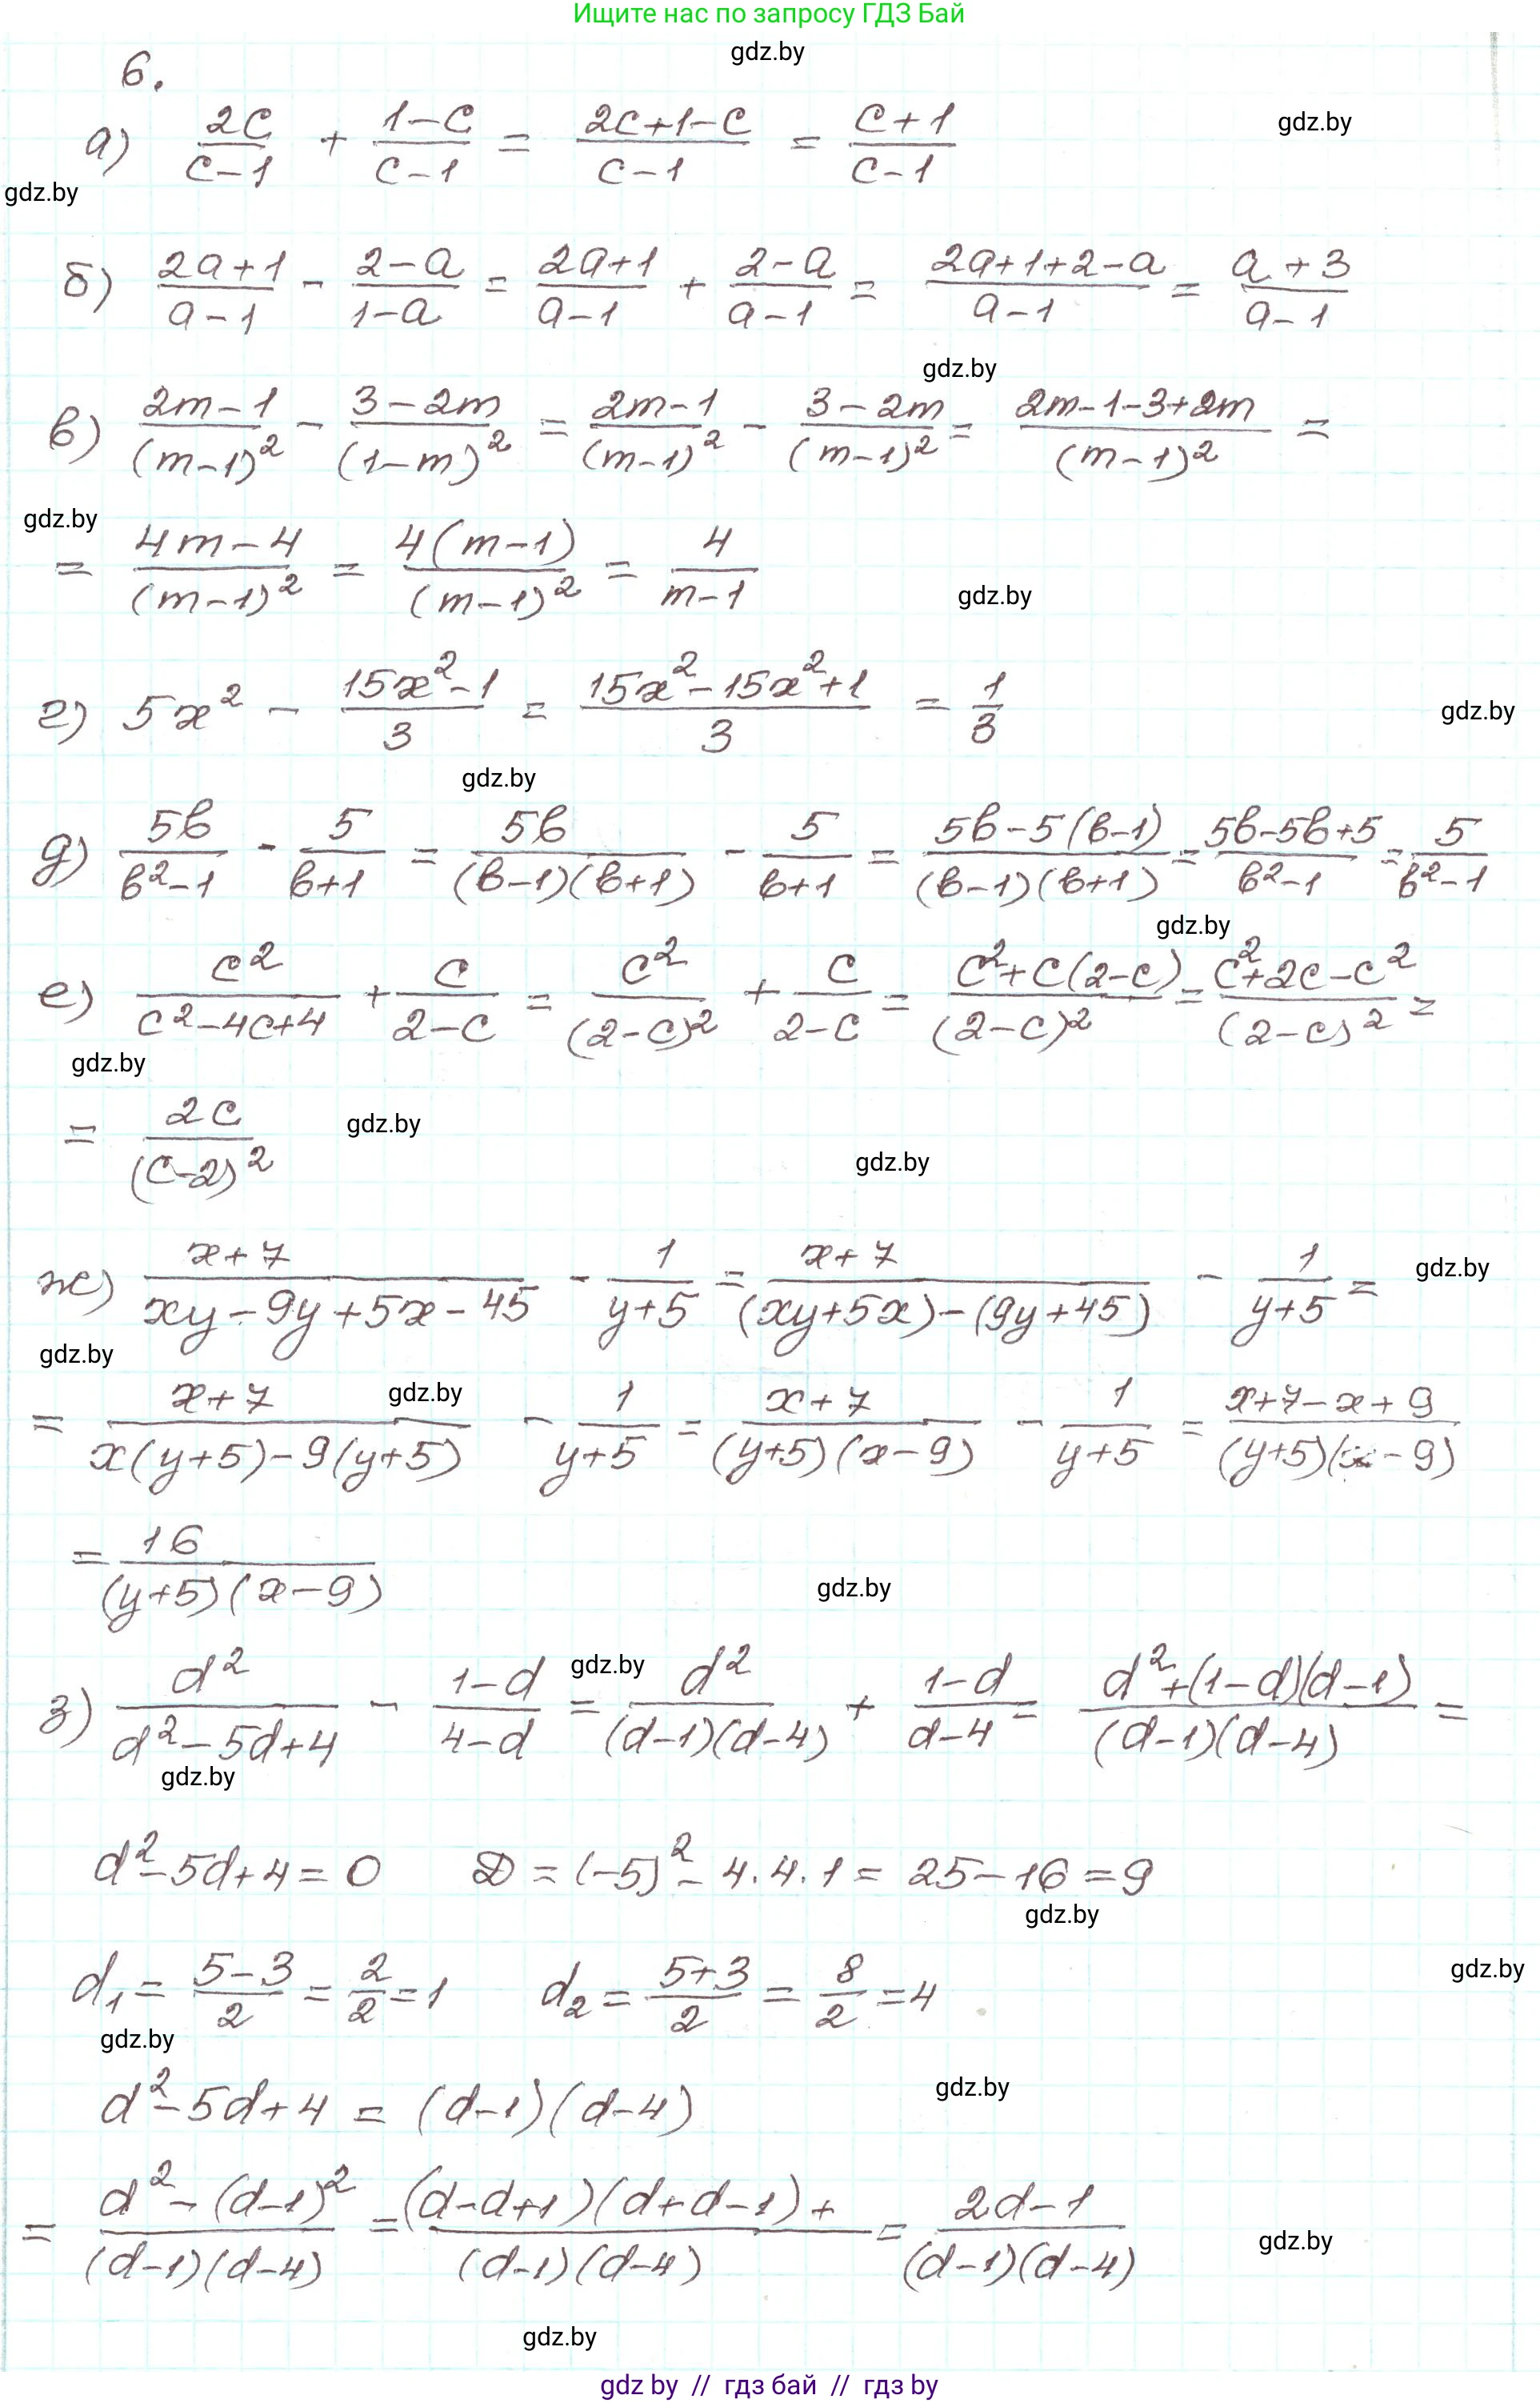 Ищите нас по запросу ГДЗ Бай
gdz.by
6.
а) 2c/(c-1) + (1-c)/(c-1) = (2c+1-c)/(c-1) = (c+1)/(c-1)
gdz.by
gdz.by
б) (2a+1)/(a-1) - (2-a)/(1-a) = (2a+1)/(a-1) + (2-a)/(a-1) = (2a+1+2-a)/(a-1) = (a+3)/(a-1)
gdz.by
в) (2m-1)/(m-1)² - (3-2m)/(1-m)² = (2m-1)/(m-1)² - (3-2m)/(m-1)² = (2m-1-3+2m)/(m-1)² =
gdz.by
= (4m-4)/(m-1)² = 4(m-1)/(m-1)² = 4/(m-1)
gdz.by
г) 5x² - (15x²-1)/3 = (15x²-15x²+1)/3 = 1/3
gdz.by
gdz.by
д) 5b/(b²-1) - 5/(b+1) = 5b/((b-1)(b+1)) - 5/(b+1) = (5b-5(b-1))/((b-1)(b+1)) = (5b-5b+5)/(b²-1) = 5/(b²-1)
gdz.by
е) c²/(c²-4c+4) + c/(2-c) = c²/(2-c)² + c/(2-c) = (c²+c(2-c))/(2-c)² = (c²+2c-c²)/(2-c)² =
gdz.by
= 2c/(c-2)²
gdz.by
gdz.by
ж) (x+7)/(xy-9y+5x-45) - 1/(y+5) = (x+7)/((xy+5x)-(9y+45)) - 1/(y+5) =
gdz.by
gdz.by
= (x+7)/(x(y+5)-9(y+5)) - 1/(y+5) = (x+7)/((y+5)(x-9)) - 1/(y+5) = (x+7-x+9)/((y+5)(x-9))
gdz.by
= 16/((y+5)(x-9))
gdz.by
з) d²/(d²-5d+4) - (1-d)/(4-d) = d²/((d-1)(d-4)) + (1-d)/(d-4) = (d²+(1-d)(d-1))/((d-1)(d-4)) =
gdz.by
gdz.by
d²-5d+4=0 D = (-5)² - 4·4·1 = 25-16 = 9
gdz.by
d₁ = (5-3)/2 = 2/2 = 1 d₂ = (5+3)/2 = 8/2 = 4
gdz.by
gdz.by
d²-5d+4 = (d-1)(d-4)
gdz.by
= (d²-(d-1)²)/((d-1)(d-4)) = ((d-d+1)(d+d-1)+)/((d-1)(d-4)) = (2d-1)/((d-1)(d-4))
gdz.by
gdz.by
gdz by // гдз бай // гдз by